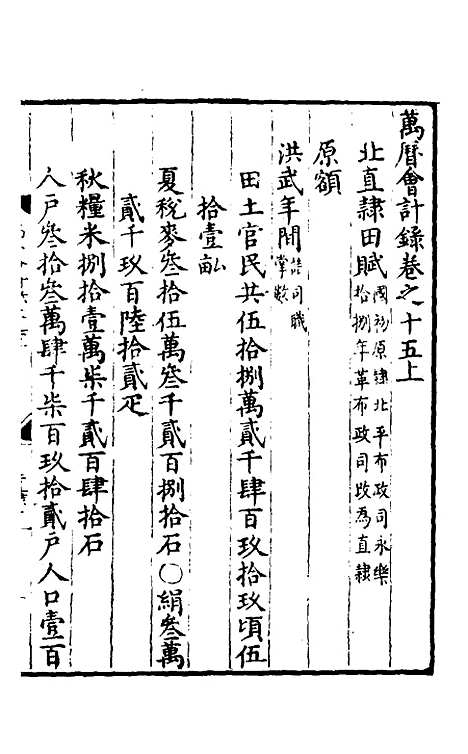 萬曆會計錄卷之十五上
北直隸田賦國初原隸北平布政司永樂
拾捌年革布政司改為直隸
原額
洪武年間諸司職
掌數
田土官民共伍拾捌萬貳千肆百玖拾玖頃伍
拾壹畝
夏稅麥叁拾伍萬叁千貳百捌拾石○絹叁萬
貳千玖百陸拾貳疋
秋糧米捌拾壹萬柒千貳百肆拾石
人戶叁拾叁萬肆千柒百玖拾貳戶人口壹百